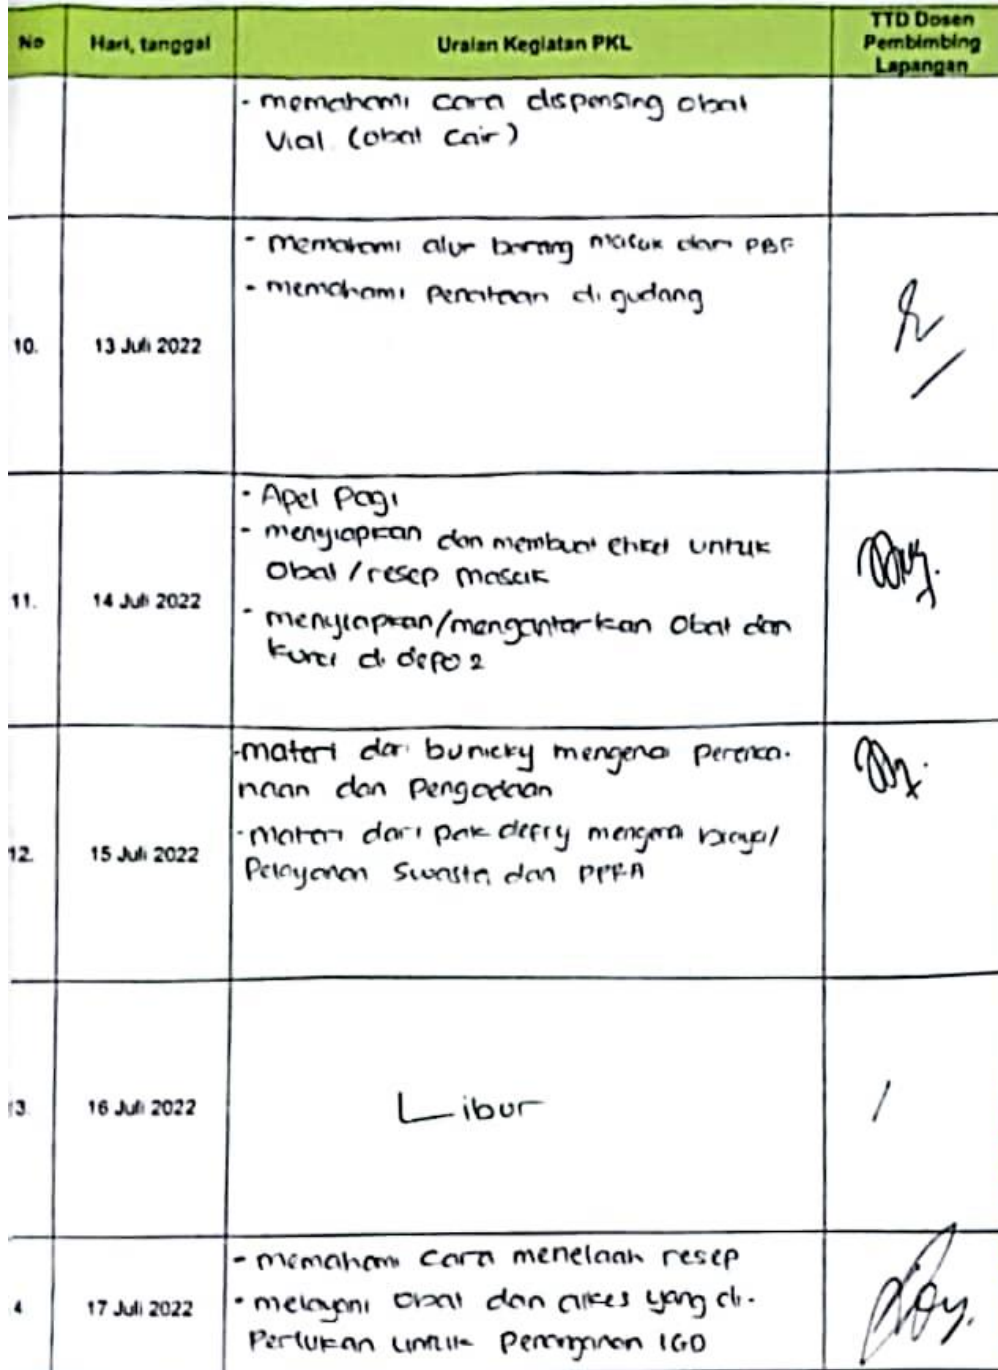 No Hari, tanggal Uraian Kegiatan PKL TTD Dosen
Pembimbing
Lapangan
- memahami cara dispensing obat
Vial (obat cair)
10. 13 Juli 2022
- memahami alur barang masuk dari PBF
- memahami Penataan di gudang
11. 14 Juli 2022
- Apel Pagi
- menyiapkan dan membuat etiket untuk
Obat / resep masuk
- menyiapkan/mengantarkan Obat dan
di depo 2
12. 15 Juli 2022
- materi dari bu nicky mengenai Perenca-
naan dan Pengadaan
- materi dari pak defry mengenai
Pelayanan Swasta dan PPRA
3. 16 Juli 2022 Libur
4 17 Juli 2022
- memahami cara menelaah resep
- melayani obat dan alkes yang di-
Perlukan untuk Penanganan IGD